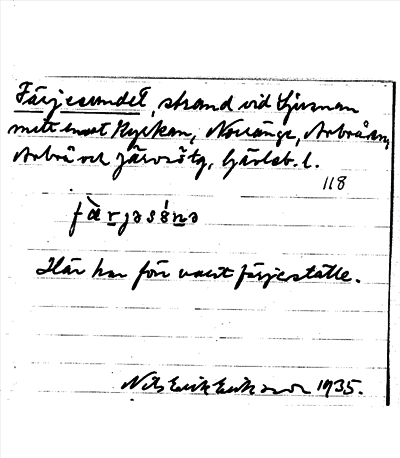 Färjesundet, strand vid Ljusnan
mitt emot Kyrkan, Norränge, Arbrå sn,
Arbrå och Järvsö tg, Gävleb. l.
118
fàrjəsónə
Här har förr varit färjeställe.
Nils Erik Eriksson 1935.